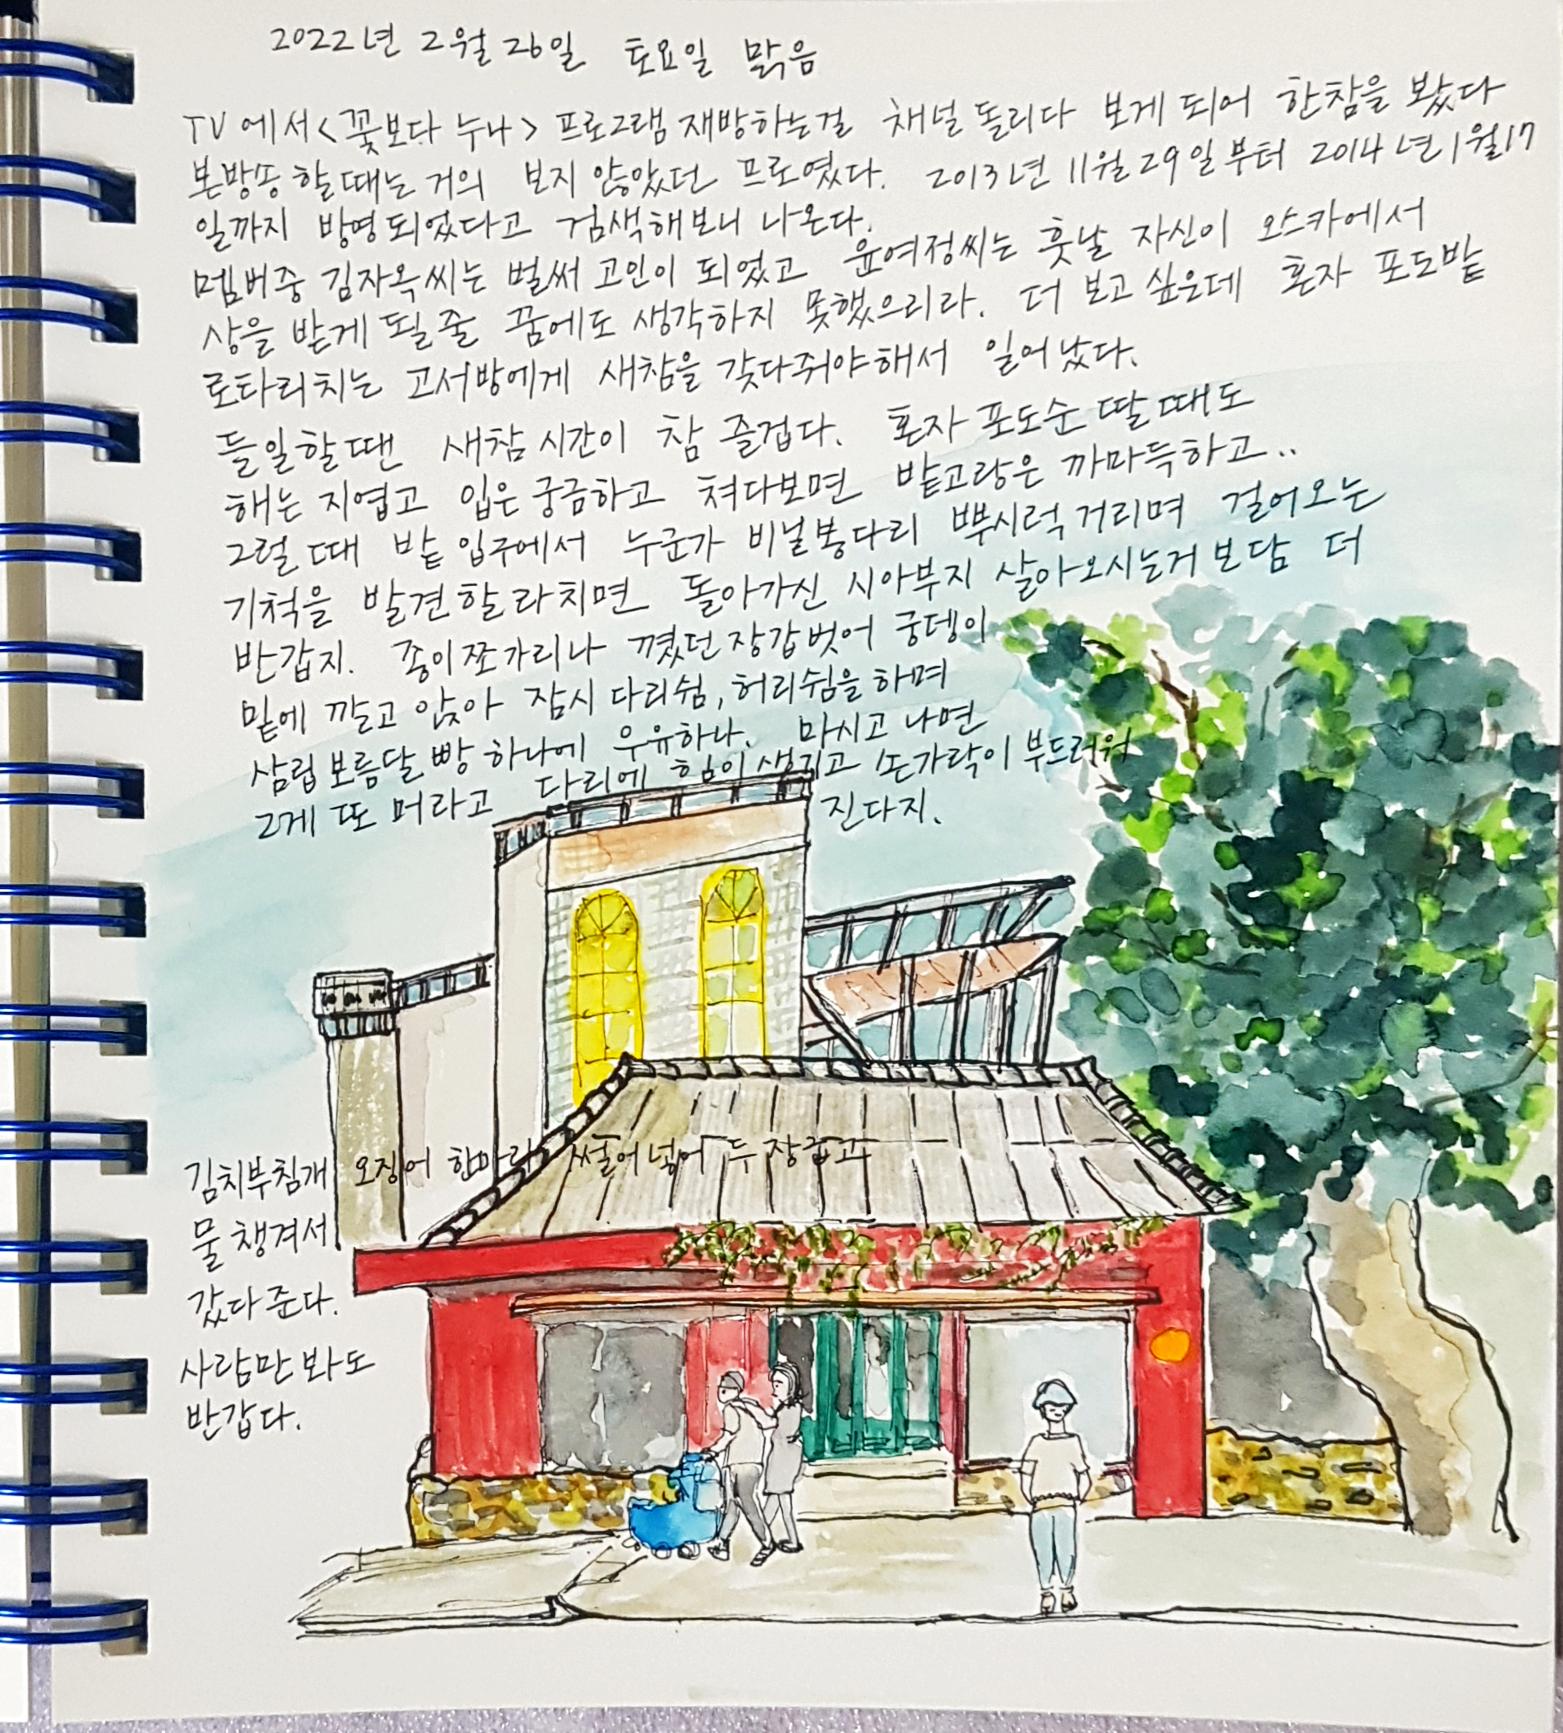 2022년 2월 26일 토요일 맑음
TV에서 <꽃보다 누나> 프로그램 재방하는걸 채널 돌리다 보게 되어 한참을 봤다
본방송 할때는 거의 보지 않았던 프로였다. 2013년 11월 29일부터 2014년 1월17
일까지 방영되었다고 검색해보니 나온다.
멤버중 김자옥씨는 벌써 고인이 되었고 윤여정씨는 훗날 자신이 오스카에서
상을 받게 될줄 꿈에도 생각하지 못했으리라. 더 보고 싶은데 혼자 포도밭
로타리치는 고서방에게 새참을 갖다줘야해서 일어났다.
들일할땐 새참시간이 참 즐겁다. 혼자 포도순 딸때도
해는 지엽고 입은 궁금하고 쳐다보면 밭고랑은 까마득하고..
그럴때 밭 입구에서 누군가 비닐봉다리 뿌시럭거리며 걸어오는
기척을 발견할라치면 돌아가신 시아부지 살아오시는거 보담 더
반갑지. 종이쪼가리나 꼈던장갑벗어 궁뎅이
밑에 깔고 앉아 잠시 다리쉼, 허리쉼을 하며
삼립 보름달 빵 하나에 우유하나. 마시고 나면
그게 또 머라고 다리에 힘이 생기고 손가락이 부드러워
진다지.
김치부침개 오징어 한마리 썰어넣어 두 장굽고
물 챙겨서
갔다 준다.
사람만 봐도
반갑다.